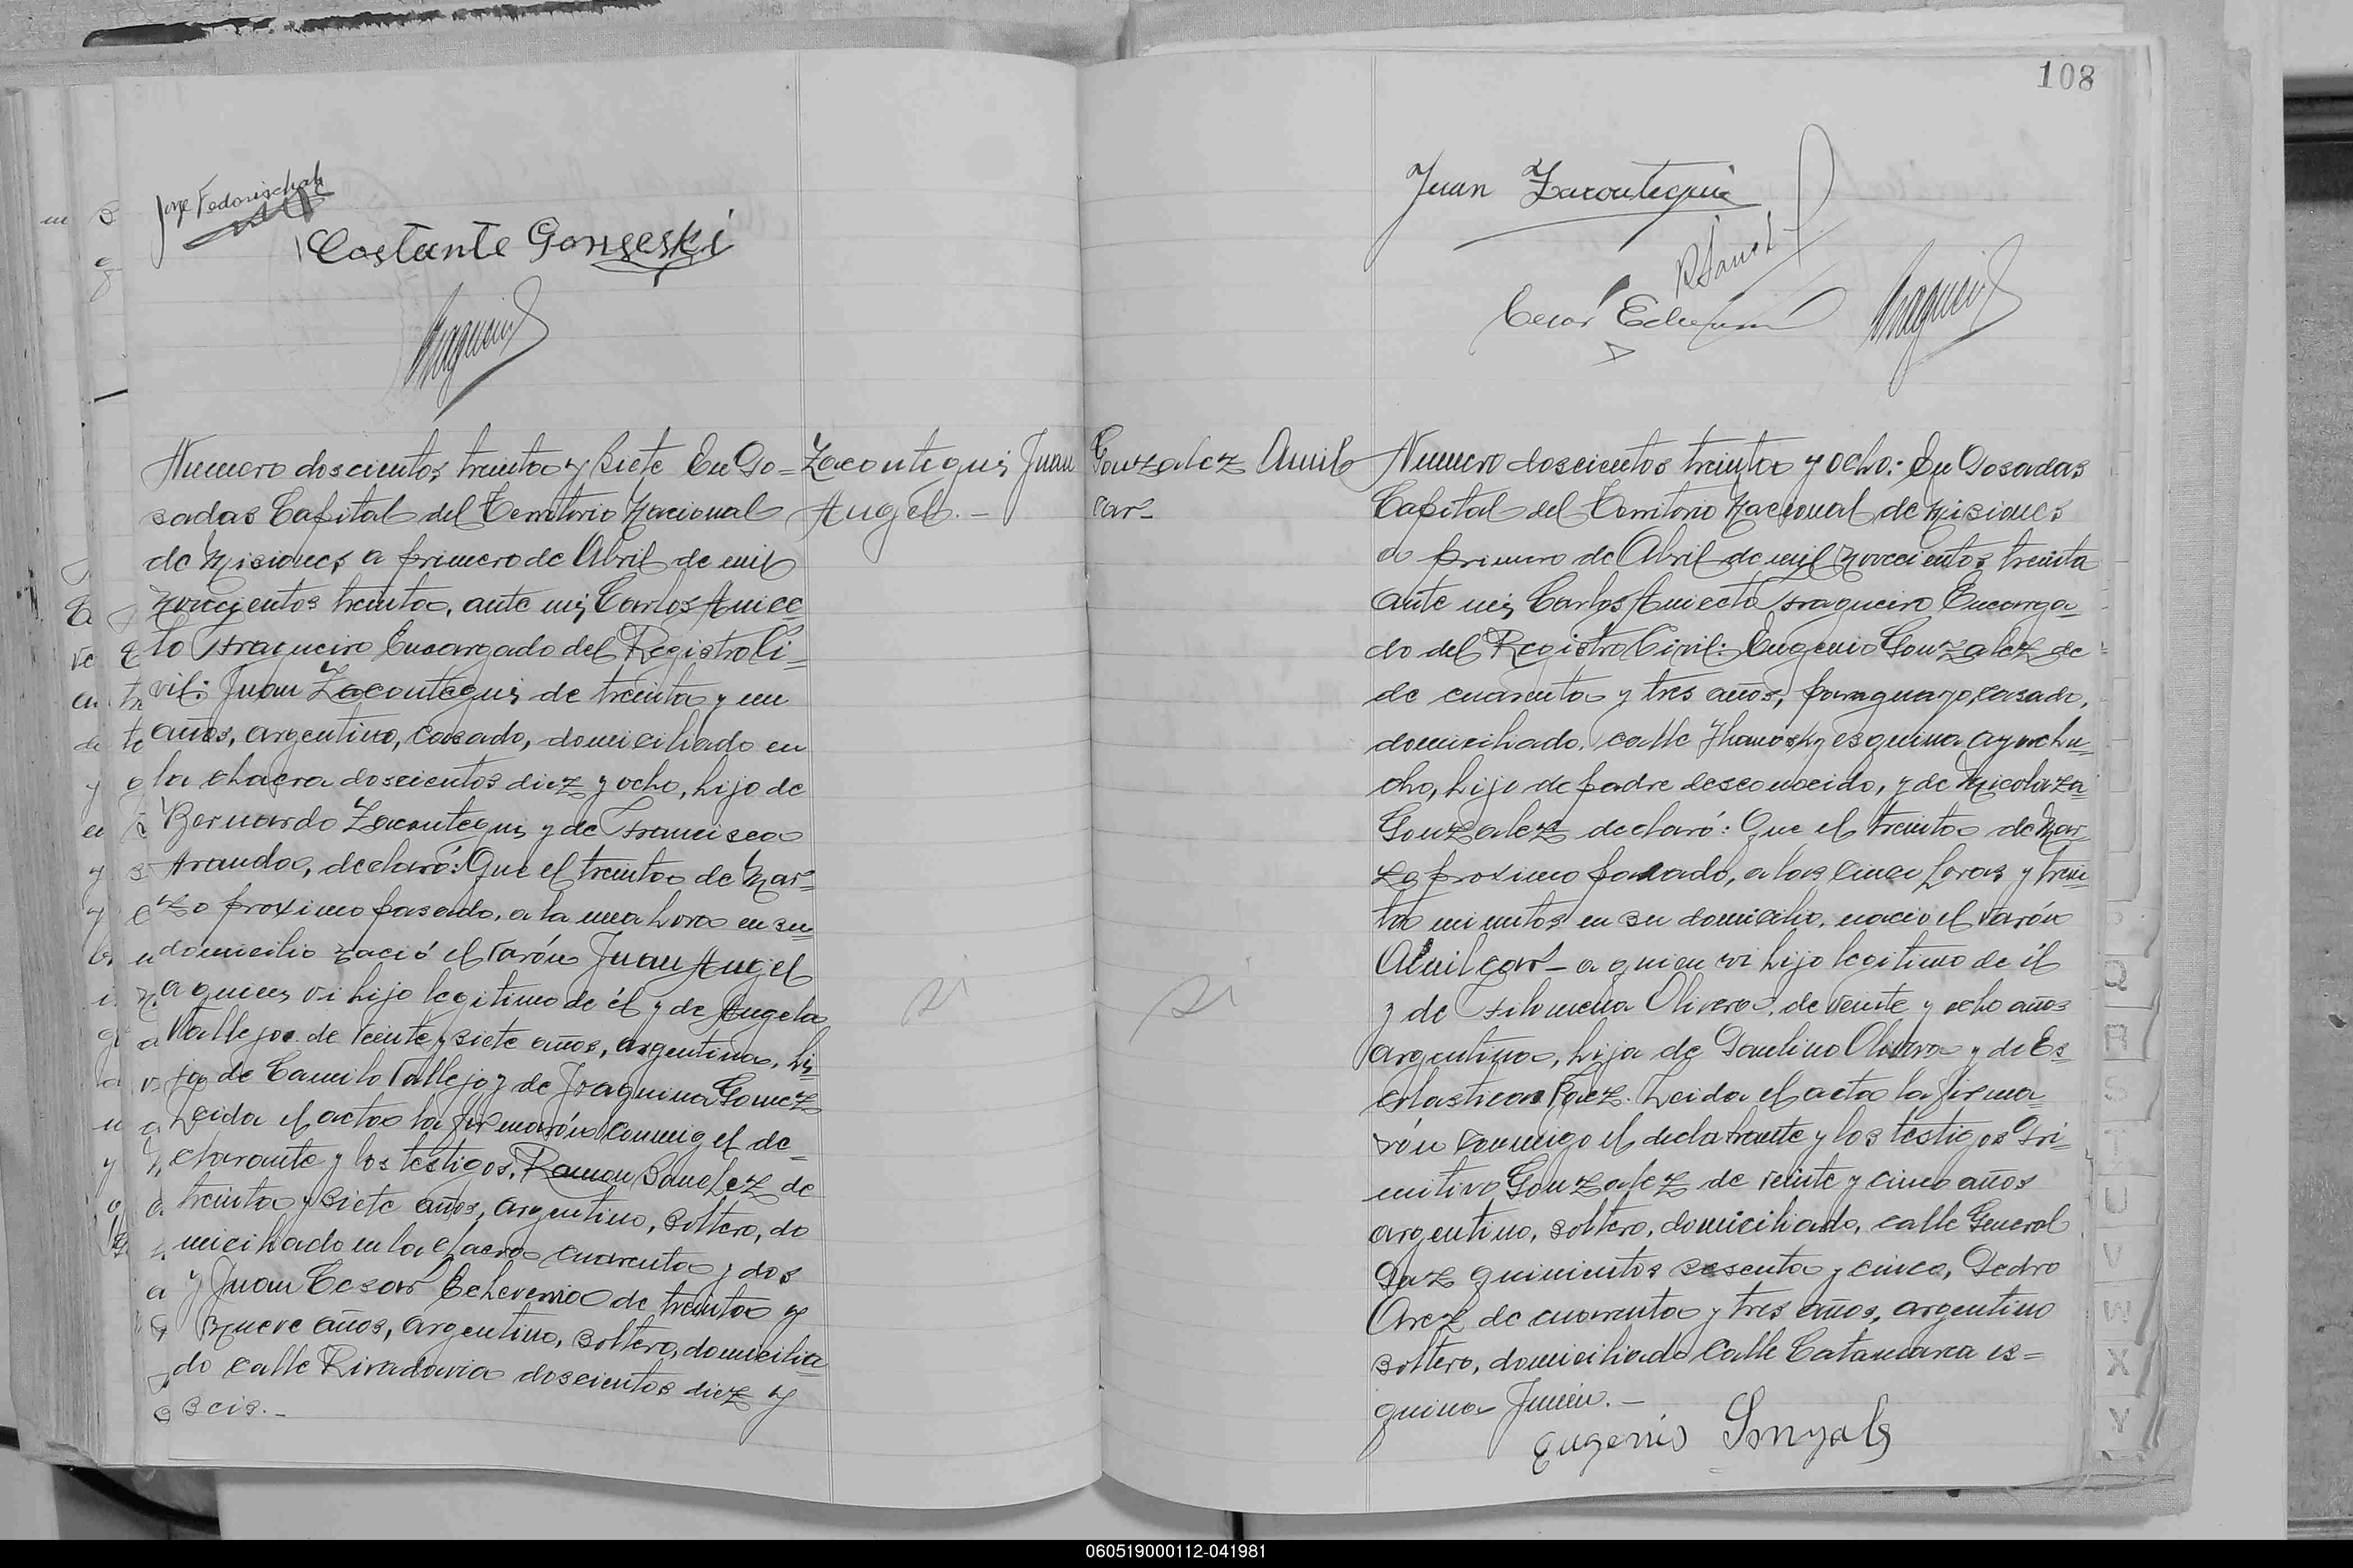 108
Jorge Fedorischak
Costante Gonseski
Numero doscientos treinta y siete En Po=
sadas Capital del Territorio Nacional
de Misiones a primero de Abril de mil
novecientos treinta, ante mi, Carlos Anice
to Fragueiro Encargado del Registro Ci=
vil: Juan Zacontegui de treinta y un
años, argentino, casado, domiciliado en
la chacra doscientos diez y ocho, hijo de
Bernardo Zacontegui y de Francisca
Aranda, declaró: Que el treinta de Mar=
zo proximo pasado, a la una hora en su
domicilio nació el varón Juan Angel
a quien vi hijo legitimo de él y de Angela
Vallejos de veinte y siete años, argentina, hi=
ja de Camilo Vallejo y de Joaquina Gomez
Leida el acta la firmarón conmigo el de=
clarante y los testigos, Ramon Sanchez de
treinta y siete años, argentino, soltero, do
miciliado en la chacra cuarenta y dos
y Juan Cesar Echeverria de treinta y
nueve años, argentino, soltero, domicilia
do calle Rivadavia doscientos diez y
seis.-
Zacontegui, Juan
Angel.-
Gonzalez Amil
car-
Juan Zacontegui
R Sanch
Cesar
Numero doscientos treinta y ocho:- En Posadas
Capital del Territorio Nacional de Misiones
a primero de Abril de mil novecientos treinta
ante mi, Carlos Aniecto Fragueiro Encarga=
do del Registro Civil: Eugenio Gonzalez de
de cuarenta y tres años, paraguayo, casado,
domiciliado, calle esquina ayachu=
cho, hijo de padre desconocido, y de Nicolaza
Gonzalez declaró: Que el treinta de Mar=
zo proximo pasado, a las cinco horas y trein
ta minutos en su domicilio, nacio el varón
Amilcar- a quien vi hijo legitimo de él
y de Filomena Olivera, de veinte y ocho años
argentina, hija de Paulino Olivera y de Es=
colastica Paez. Leida el acta la firma=
rón conmigo el declarante y los testigos Pri=
mitivo Gonzalez de veinte y cinco años
argentino, soltero, domiciliado, calle General
Paz quinientos sesenta y cinco, Pedro
Arez de cuarenta y tres años, argentino
soltero, domiciliado Calle Catamarca es=
quina Junin.-
Eugenio Gonzales
Q
R
S
T
U
V
W
X
Y
060519000112-041981